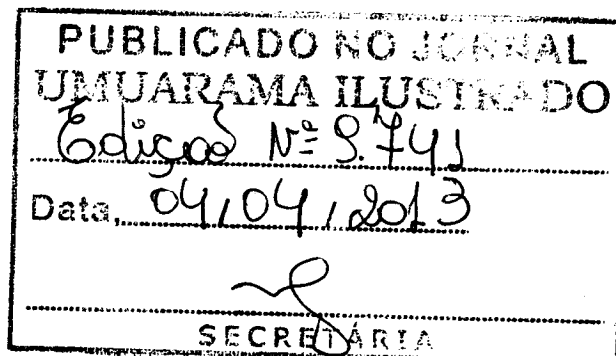 PUBLICADO NO JORNAL
UMUARAMA ILUSTRADO
Edição Nº 9.741
Data, 04/04/2013
SECRETÁRIA